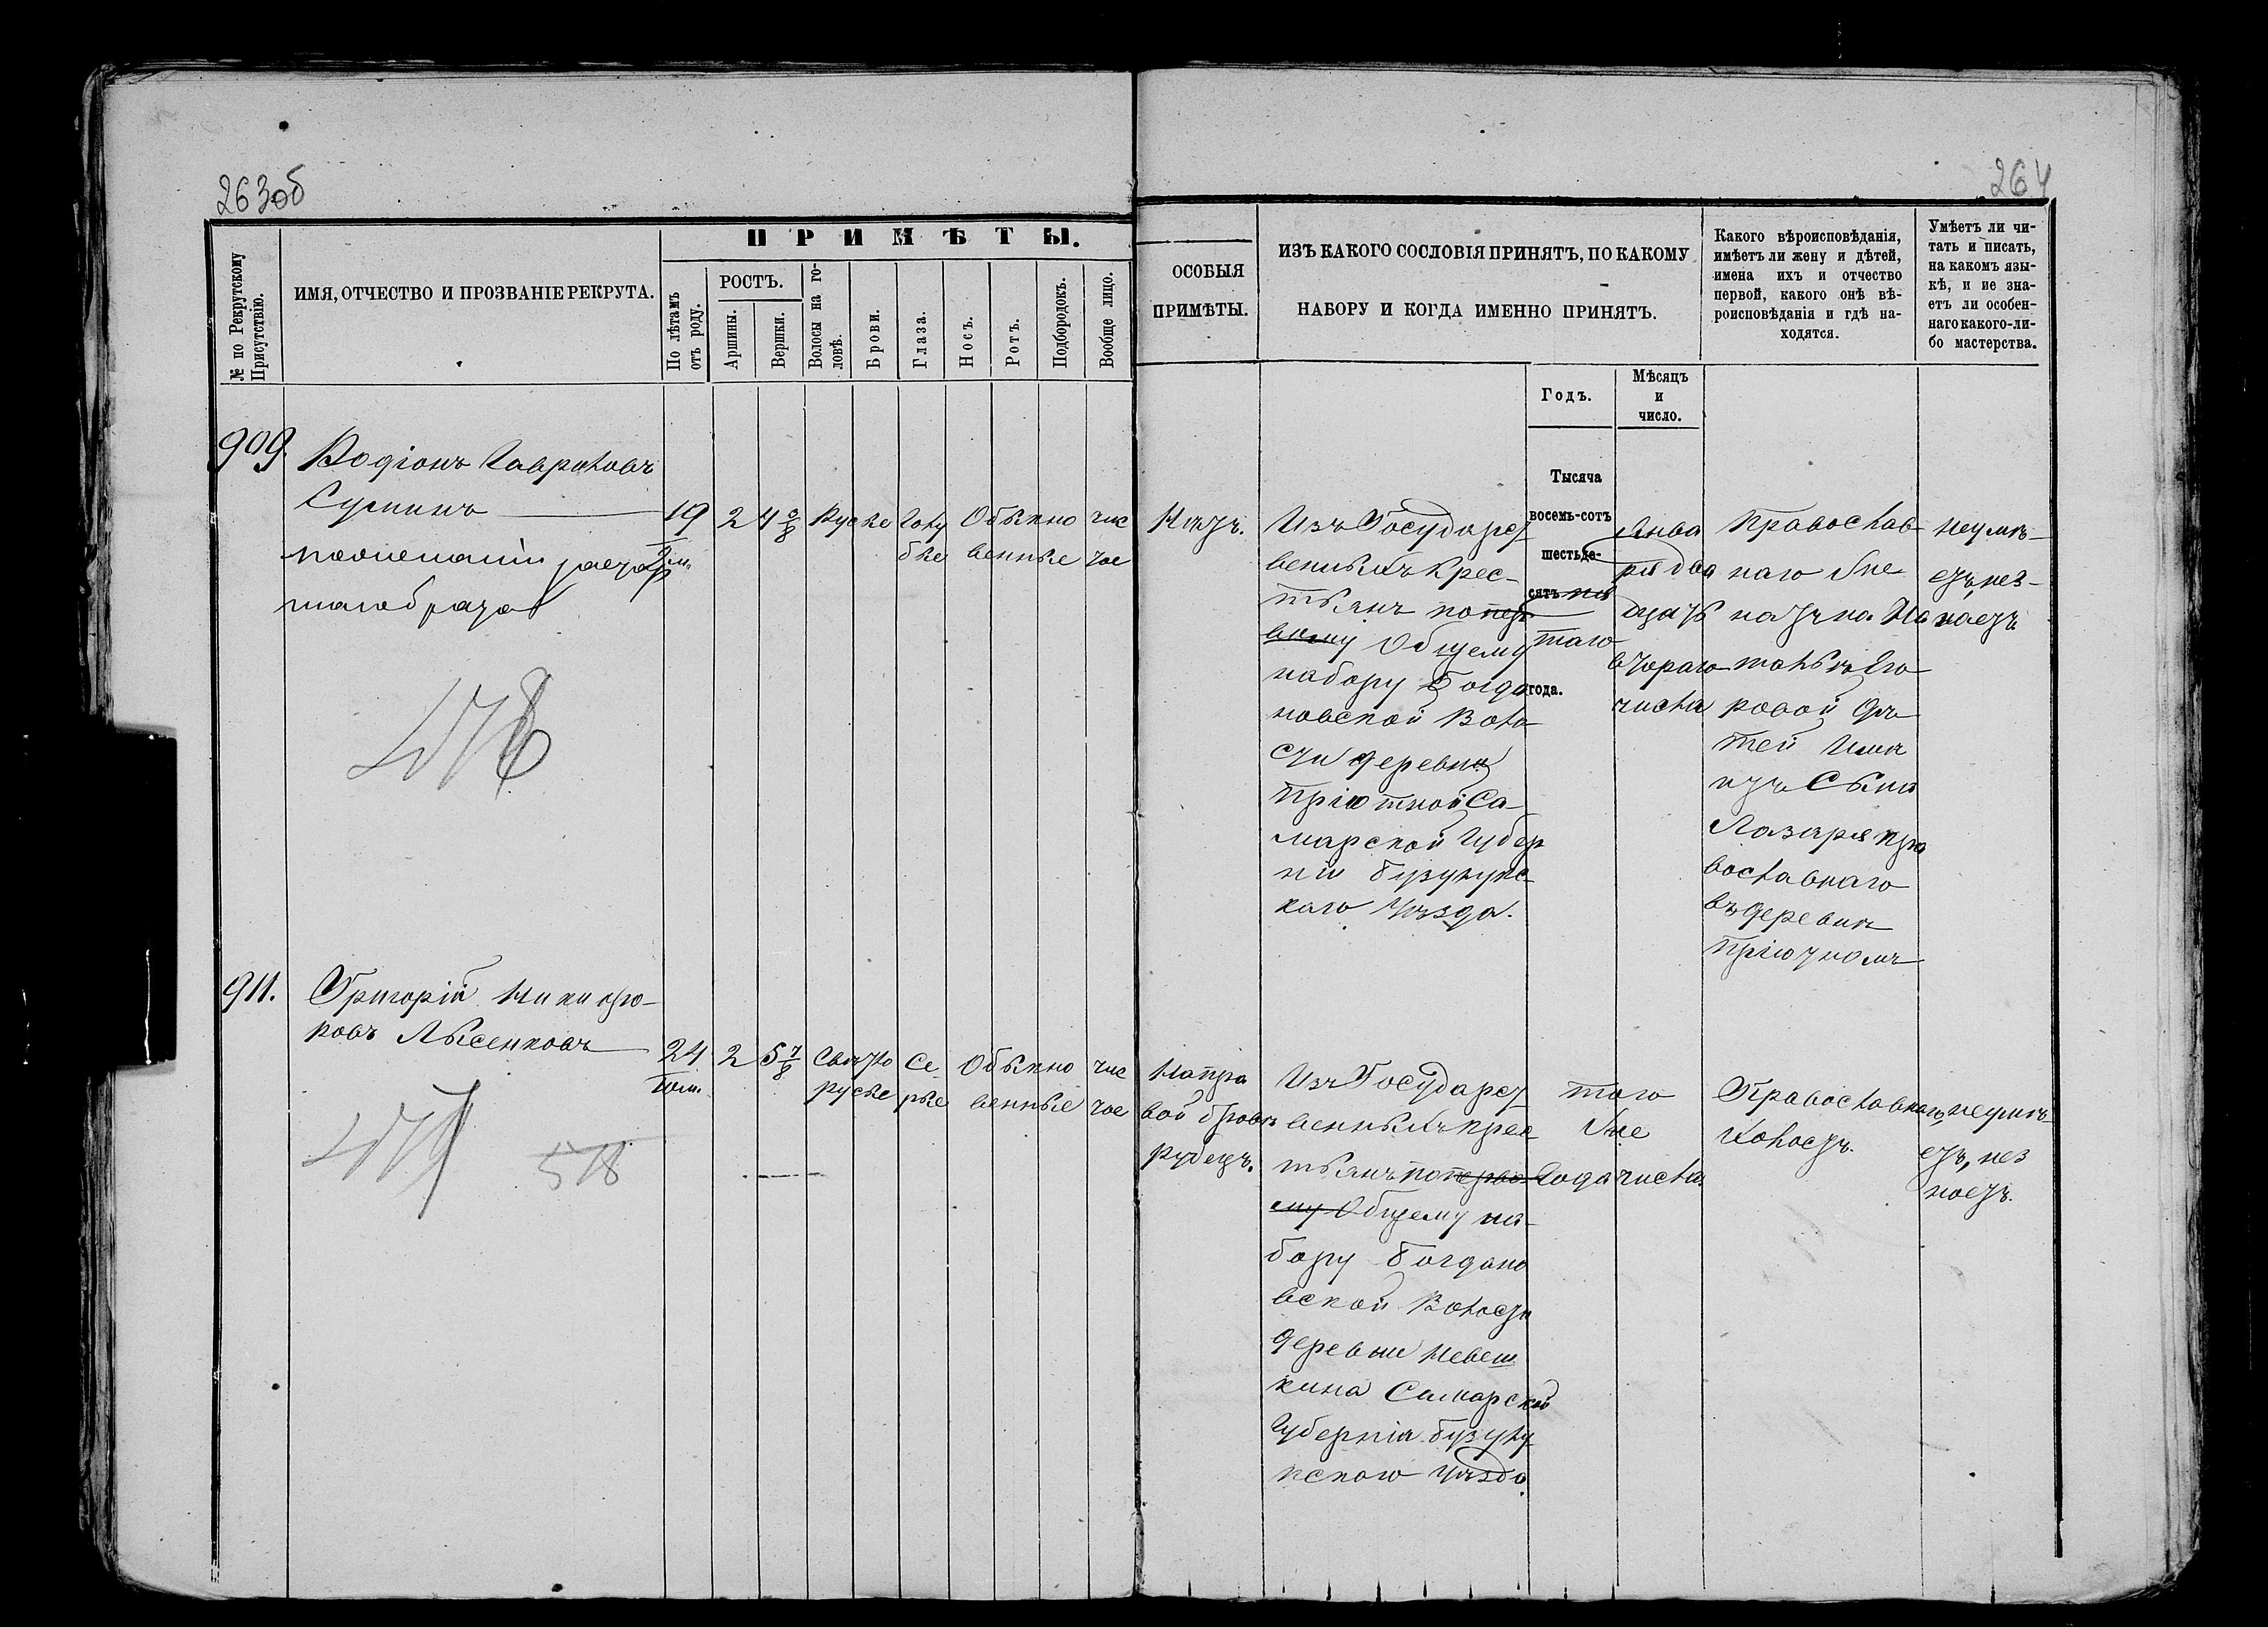 263об
264
№ по Рекрутскому Присутствію.
ИМЯ, ОТЧЕСТВО И ПРОЗВАНІЕ РЕКРУТА.
ПРИМѢТЫ.
По лѣтамъ отъ роду.
РОСТЪ.
Аршины.
Вершки.
Волосы на головѣ.
Брови.
Глаза.
Носъ.
Ротъ.
Подбородокъ.
Вообще лицо.
ОСОБЫЯ
ПРИМѢТЫ.
ИЗЪ КАКОГО СОСЛОВІЯ ПРИНЯТЪ, ПО КАКОМУ
НАБОРУ И КОГДА ИМЕННО ПРИНЯТЪ.
Какого вѣроисповѣданія,
имѣетъ ли жену и дѣтей,
имена ихъ и отчество
первой, какого онѣ вѣ-
роисповѣданія и гдѣ на-
ходятся.
Умѣетъ ли чи-
тать и писать,
на какомъ язы-
кѣ, и не зна-
етъ ли особен-
наго какого-ли-
бо мастерства.
Годъ.
Мѣсяцъ
и
число.
909.
Родіонъ Гавриловъ
Сулинъ
19
2
4
Русые
Голу
бые
Обыкно
венные
чис
тое
Нѣтъ.
Изъ Государст
венныхъ Крес-
тьянъ по пер
вому Общему
набору Богда
новской Воло
сти деревни
Пріютной Са-
марской Губер
ніи Бузулукс
каго Уѣзда.
Тысяча
восемь-сотъ
шестьде-
сятъ пя
таго
года.
Янва
ря два
дцать
втораго
числа
Православ
наго Же
натъ на На
тальѣ Его
ровой дѣ
тей Имѣ
етъ Сына
Лазаря пра
вославнаго
въ деревнѣ
Пріютномъ
неумѣ-
етъ, нез-
наетъ.
478
911.
Григорій Никифо-
ровъ Лысенковъ
24
2
5 7/8
Свѣтло
русые
Се
рые
Обыкно
венные
чис
тое
На пра
вой брови
рубецъ.
Изъ Государст
венныхъ крес
тьянъ по перво
му Общему на-
бору Богдано
вской Волости
деревни Невеш
кина Самарской
Губерніи Бузулу
кского Уѣзда.
того
Года
Же
числа.
Православнаго
Холостъ.
неумѣ-
етъ, нез
наетъ.
479
578